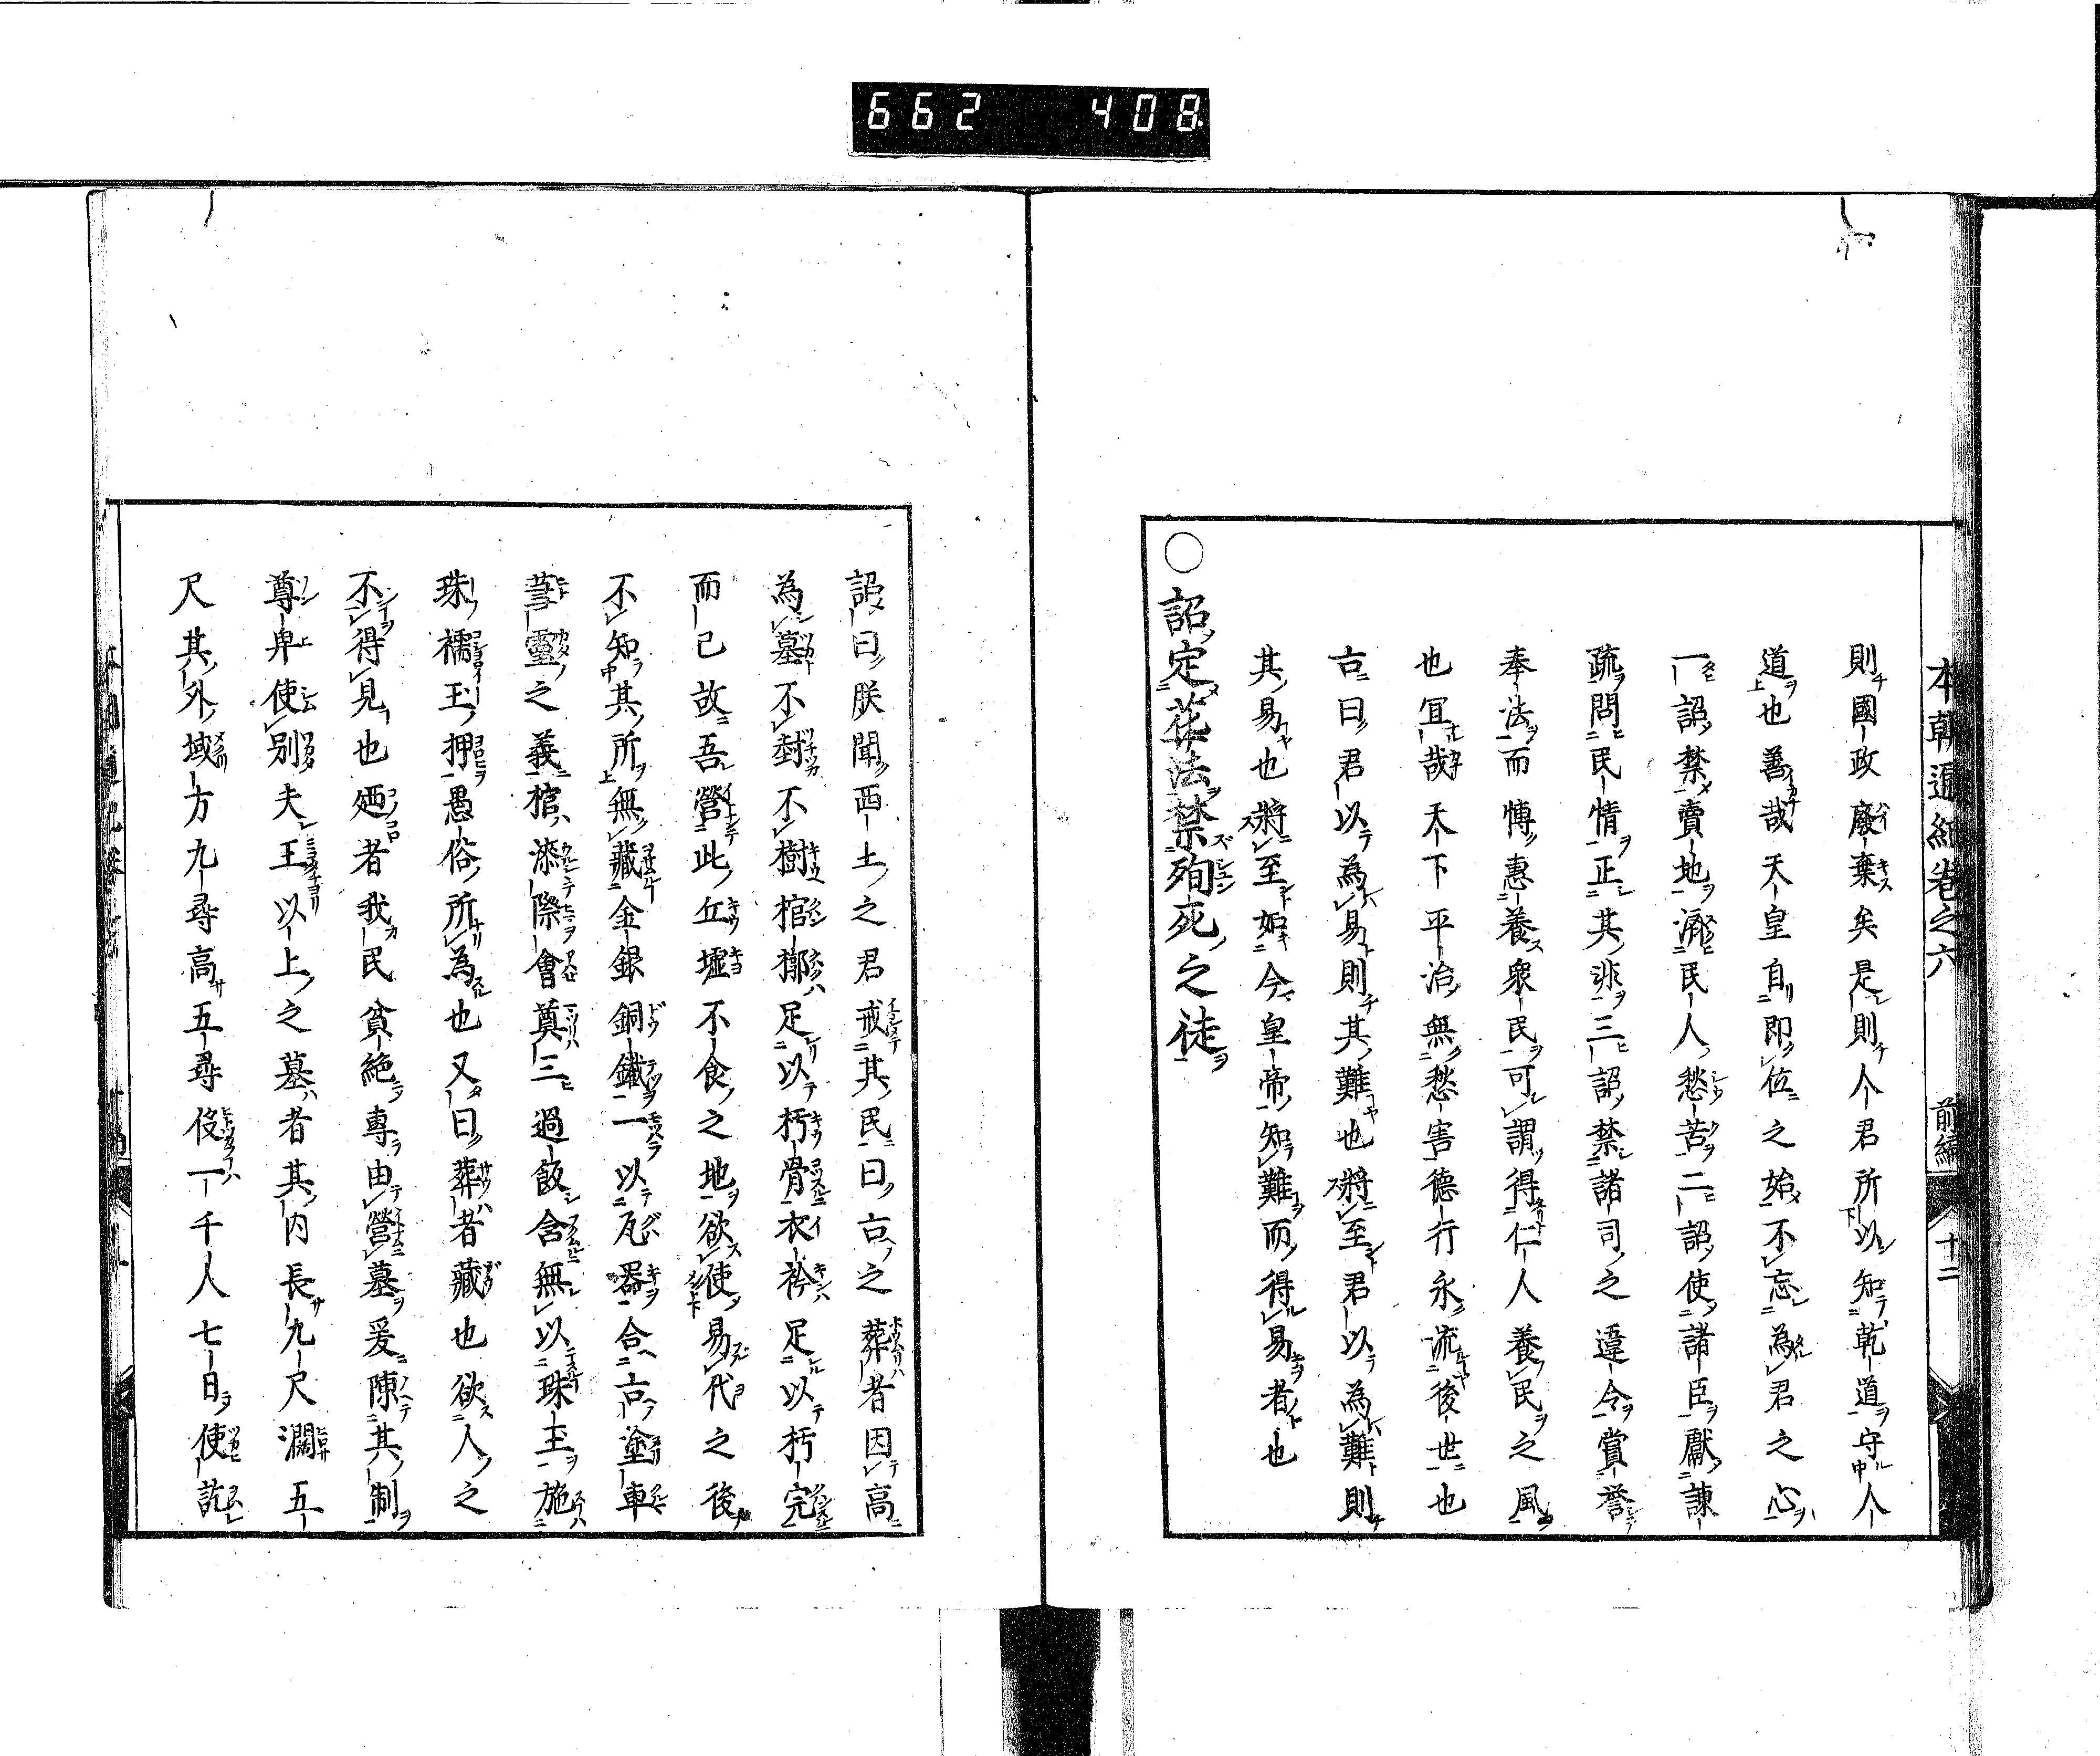 662 408
本朝通紀卷之六 前編 十二
則國政廢棄矣是則人君所以知乾道守人
道也善哉天皇自即位之始不忘為君之心
一詔禁賣地濟民人愁苦二詔使諸臣獻諫
疏問民情正其非三詔禁諸司之違令賞誉
奉法而慱惠養衆民可謂得仁人養民之風
也冝哉天下平治無愁害德行永流後世也
古曰君以為易則其難也將至君以為難則
其易也將至如今皇帝知難而得易者也
○詔定葬法禁殉死之徒
詔曰朕聞西土之君戒其民曰古之葬者因高
為墓不封不樹棺槨足以朽骨衣衿足以朽完
而已故吾營此丘墟不食之地欲使易代之後
不知其所無藏金銀銅鐵一以瓦器合古塗車
蒭靈之義棺漆際會奠三過飯含無以珠玉施
珠襦玉押愚俗所為也又曰葬者藏也欲人之
不得見也廼者我民貧絶專由營墓爰陳其制
尊卑使別夫王以上之墓者其內長九尺濶五
尺其外域方九尋高五尋伇一千人七日使訖